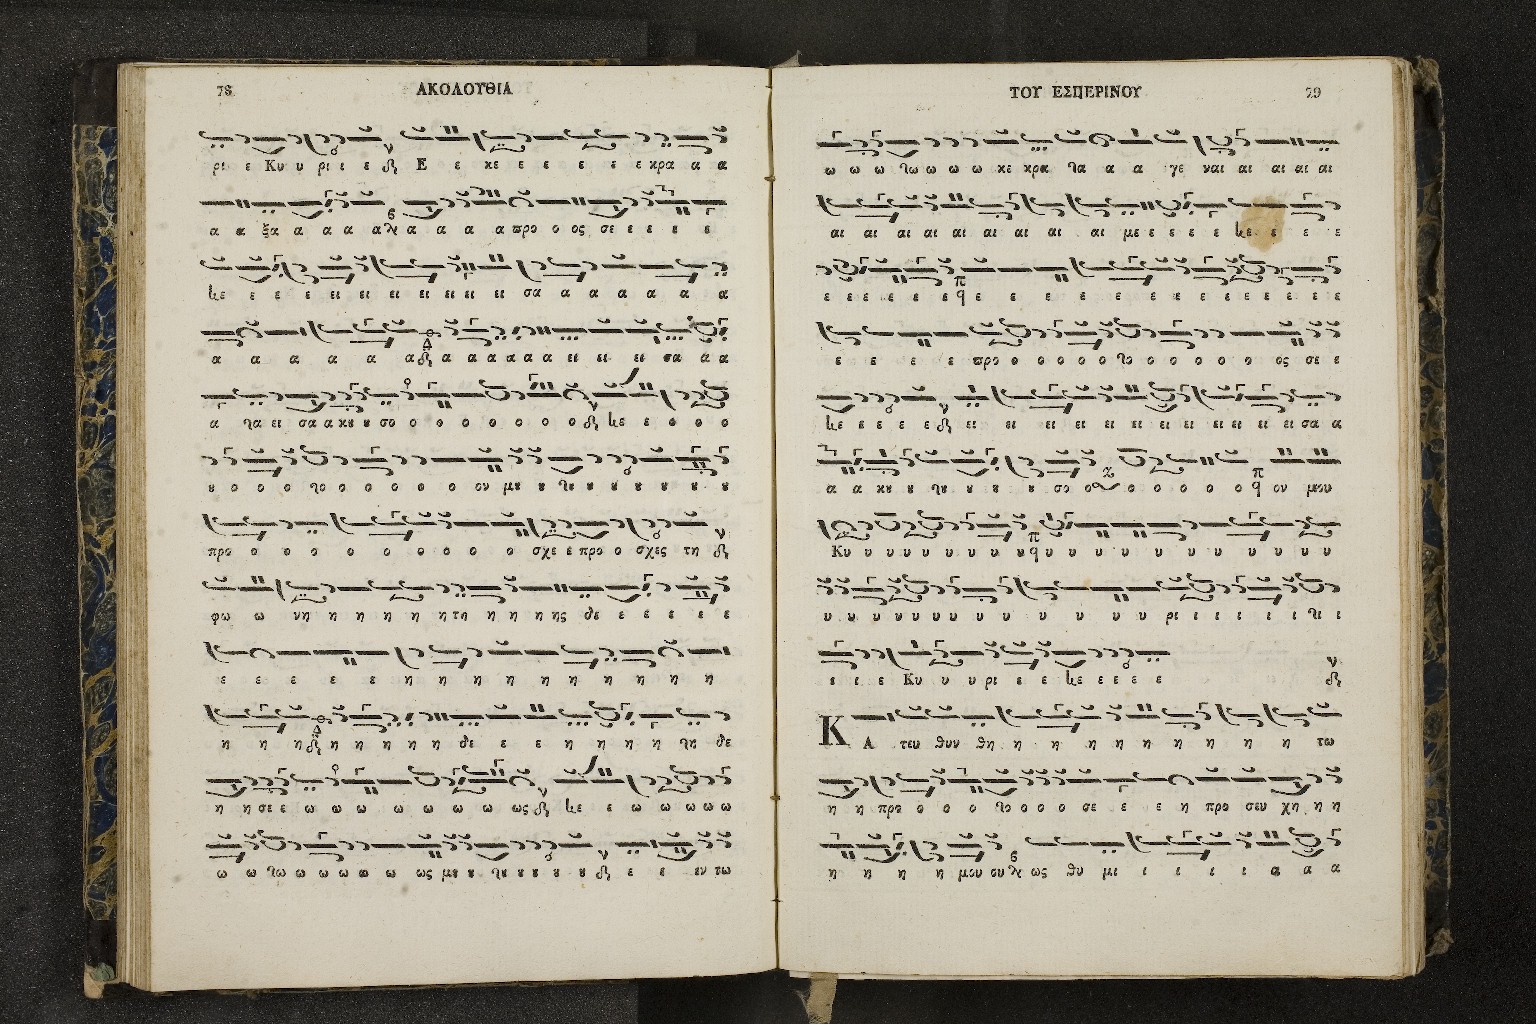 78 ΑΚΟΛΟΥΘΙΑ
ρι ε Κυ υ ρι ι ε Ε ε κε ε ε ε ε ε ε κρα α α
α α ξα α α α α α α α α α προ ο ος σε ε ε ε ε
με ε ε ε ει ει ει ει ει ει ει σα α α α α α α
α α α α α α α α α α α α ει ει ει σα α α
α τα ει σα α κυ υ σο ο ο ο ο ο ο ο με ε ο ο ο
ο ο ο το ο ο ο ο ο ον μυ υ τυ υ υ υ υ υ υ
προ ο ο ο ο ο ο ο ο ο σχε ε προ ο σχες τη
φω ω νη η η η η η τη η η η ης δε ε ε ε ε ε
ε ε ε ε ε η η η η η η η η η η
η η η η η η η η δε ε ε η η η η τη δε
η η σε ε ω ω ω ω ω ω ω ως με ε ω ω ω ω
ω ω τω ω ω ω ω ω ως μυ υ τυ υ υ υ υ ε ε εν τω
ΤΟΥ ΕΣΠΕΡΙΝΟΥ 79
ω ω ω τω ω ω ω κε κρα τα α α γε ναι αι αι αι αι αι
αι αι αι αι αι αι αι αι αι με ε ε ε ε με ε ε ε
ε ε ε ε ε ε ε ε ε ε ε ε ε ε ε ε ε ε ε ε
ε ε ε ε προ ο ο ο ο ο το ο ο ο ο ο ος σε ε
με ε ε ε ε ει ει ει ει ει ει ει ει ει ει ει σα α
α α κυ υ τυ υ υ υ σο ο ο ο ο ο ο ον μου
Κυ υ υ υ υ υ υ υ υ υ υ υ υ υ υ υ υ υ
υ υ υ υ υ υ υ υ υ υ υ υ υ ρι ι ι ι ι τι ι
ι ι ε Κυ υ υ ρι ε ε με ε ε ε
Κ Α τευ θυν θη η η η η η η η η η η τω
η η προ ο ο ο το ο ο ο σε ε ε η προ σευ χη η η
η η η η μου ου ως θυ μι ι ι ι ι α α α